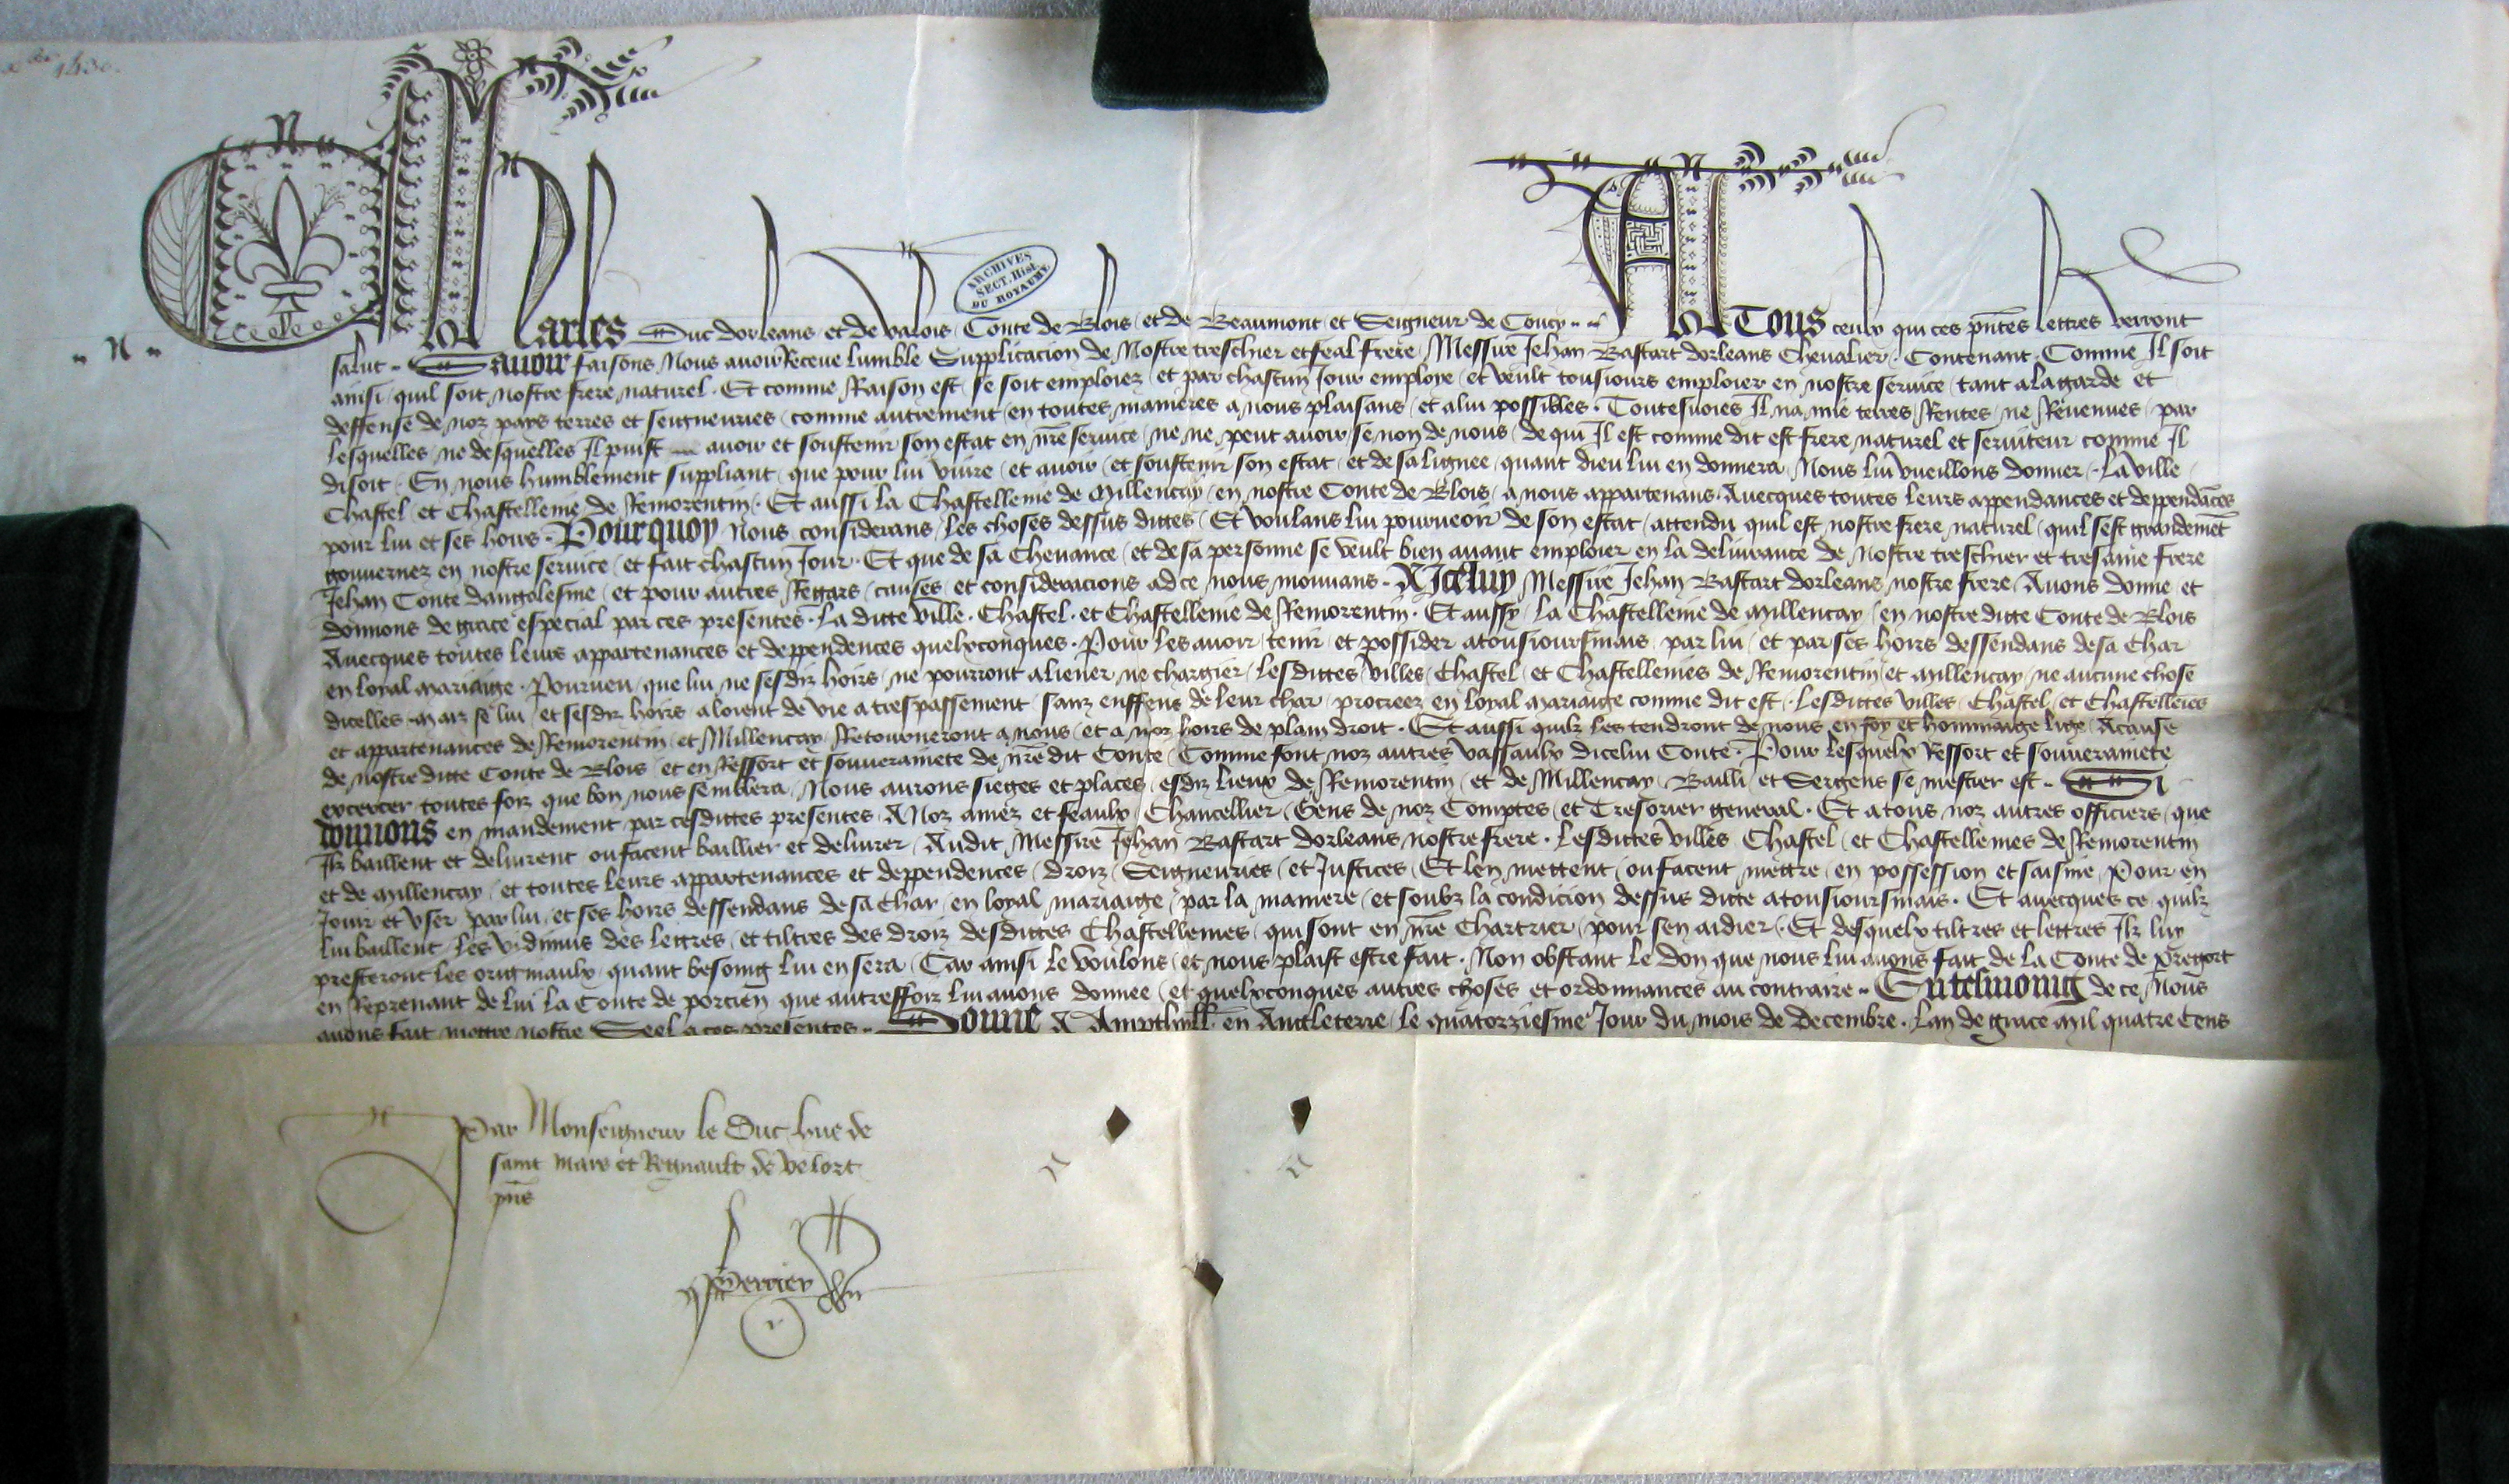 xbre 1430.
ARCHIVES SECT. Hist. DU ROYAUME
Charles Duc dorleans et de valois Conte de Blois et de Beaumont et Seigneur de Coucy A Tous ceulx qui ces pntes lettres verront
salut Savoir faisons Nous avoir Receue lumble Supplicacion de Nostre treschier et feal frere Messire Jehan Bastart dorleans Chevalier Contenant Comme Il soit
ainsi quil soit nostre frere naturel Et comme Raison est se soit emploiez et par chascun Jour emploie et veult tousiours emploier en nostre service tant a la garde et
deffense de noz pays terres et seigneuries comme autrement en toutes manieres a nous plaisans et a lui possibles Toutesvoies Il na mie terres Rentes ne Revenues par
lesquelles ne desquelles Il puist avoir et soustenir son estat en nre service ne ne peut avoir se non de nous de qui Il est comme dit est frere naturel et serviteur comme Il
disoit En nous humblement suppliant que pour lui vivre et avoir et soustenir son estat et de sa lignee quant dieu lui en donnera Nous lui vueillons donner La ville
Chastel et Chastellenie de Remorentin Et aussi la Chastellenie de Millencay en nostre Conte de Blois a nous appartenans Avecques toutes leurs appendances et deppendances
pour lui et ses hoirs Pourquoy Nous considerans les choses dessus dittes Et voulans lui pourveoir de son estat attendu quil est nostre frere naturel quil sest grandemet
gouvernez en nostre service et fait chascun Jour Et que de sa chevance et de sa personne se veult bien avant emploier en la delivrance de Nostre treschier et tresame frere
Jehan Conte dangolesme et pour autres Regars causes et consideracions ad ce nous mouvans A Icelluy Messire Jehan Bastart dorleans nostre frere Avons donne et
donnons de grace especial par ces presentes La ditte ville Chastel et Chastellenie de Remorentin Et aussy la Chastellenie de Millencay en nostre ditte Conte de Blois
Avecques toutes leurs appartenances et deppendences quelxconques Pour les avoir tenir et possider a tousioursmais par lui et par ses hoirs dessendans de sa char
en loyal mariaige Pourveu que lui ne ses diz hoirs ne pourront aliener ne chargier lesdittes villes Chastel et Chastellenies de Remorentin et Millencay ne aucune chose
dicelles Maiz se lui et ses diz hoirs aloient de vie a trespassement sanz enffens de leur char procreez en loyal mariaige comme dit est Lesdittes villes Chastel et Chastellenies
et appartenances de Remorentin et Millencay Retourneront a nous et a noz hoirs de plain droit Et aussi quilz les tendront de nous en foy et hommaige lige A cause
de nostre ditte Conte de Blois et en Ressort et souverainete de nre dit Conte Comme font noz autres vassaulx dicelui Conte Pour lesquelx Ressort et souverainete
excercer toutes foiz que bon nous semblera Nous aurons sieges et places esdiz lieux de Remorentin et de Millencay Bailli et Sergens se mestier est Si
donnons en mandement par cesdittes presentes A Noz amez et feaulx Chancellier Gens de noz Comptes et Tresorier general Et a tous noz autres officiers que
Ilz baillent et delivrent ou facent baillier et delivrer Audit Messire Jehan Bastart dorleans nostre frere Lesdittes villes Chastel et Chastellenies de Remorentin
et de Millencay et toutes leurs appartenances et deppendences droiz Seigneuries et Justices Et len mettent ou facent mettre en possession et saisine Pour en
Jouir et user par lui et ses hoirs dessendans de sa char en loyal mariaige par la maniere et soubz la condicion dessus ditte a tousioursmais Et avecques ce quilz
lui baillent les vidimus des lettres et tiltres des droiz desdittes Chastellenies qui sont en nre Chartrier pour sen aidier Et desquelx tiltres et lettres Ilz luy
presteront les originaulx quant besoing lui en sera Car ainsi le voulons et nous plaist estre fait Non obstant le don que nous lui avons fait de la Conte de Pregort
en Reprenant de lui la Conte de porcien que autreffoiz lui avons donnee et quelxconques autres choses et ordonnances au contraire En tesmoing de ce Nous
avons fait mettre nostre Seel a ces presentes Donne A Ampthyll en Angleterre le quatorziesme Jour du mois de Decembre Lan de grace mil quatre cens
Par Monseigneur le Duc hue de
saint mars et Regnault de velort
pns
Perrier